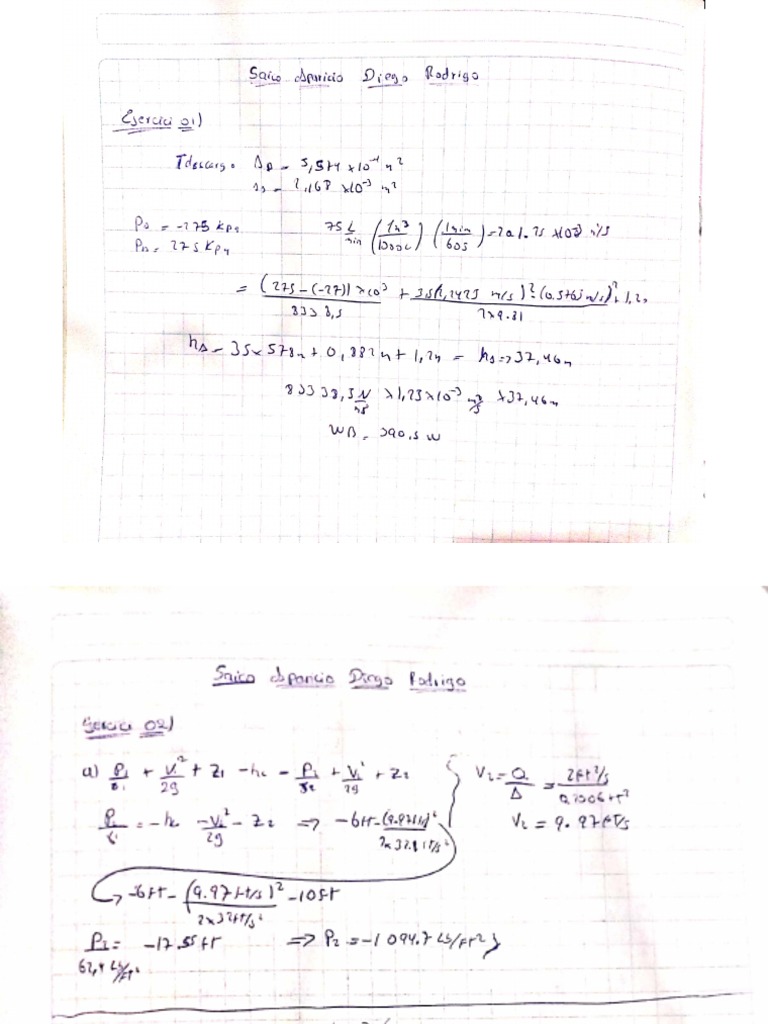 Saico Aparicio Diego Rodrigo
Ejercici 01)
Tdescarg. A_D = 5,574 ×10⁻⁴ m²
= 2,168 ×10⁻³ m²
P = -275 kPa
P_B = 275 KPa
75 L/min (1m³/1000L) (1min/60s) =
= (275-(-27))×10³ / 8338,5 + (2,2425 m/s)² - (0.5765 m/s)² / 2×9.81 + 1,2m
h_A = 35×578m + 0,882m + 1,2m = h_A => 37,46m
83338,5 N/m³ ×1,25×10⁻³ m³/s ×37,46m
WB = 390.5 W
Saico Aparicio Diego Rodrigo
Ejercici 02)
a) P₁/γ₁ + V₁²/2g + Z₁ - h_L = P₂/γ₂ + V₂²/2g + Z₂
V₂ = Q/A = 2ft³/s / 0,2006ft²
V₂ = 9.97ft/s
P₂/γ = -h_L - V₂²/2g - Z₂ => -6ft - (9.97ft/s)² / 2×32.2ft/s²
-6ft - (9.97ft/s)² / 2×32ft/s² - 10ft
P₂ / 62,4 Lb/ft³ = -17.55ft => P₂ = -1094.7 Lb/ft²